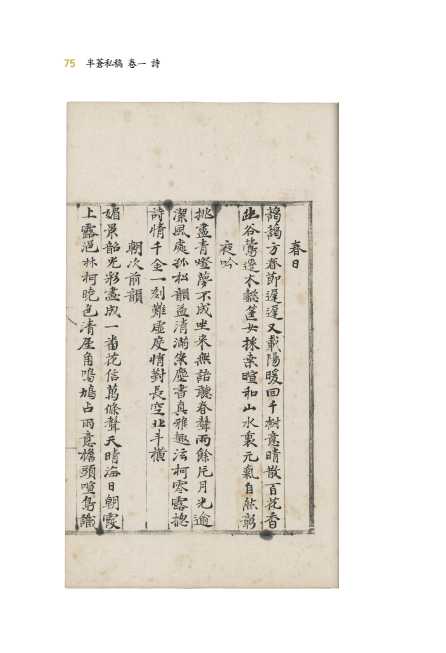 75 半蒼私稿 卷一 詩
春日
方春節遲遲又載陽暖回千樹意晴散百花香
幽谷鶯遷木懿筐女採桑暄和山水裏元氣自然彰
夜吟
挑盡青燈夢不成坐來無語聽春聲雨餘片月光逾
潔風處孤松韻益清滿案塵書真雅趣柯零露總
詩情千金一刻難虛度悄對長空北斗橫
朝次前韻
媚景韶光彩盡成一番花信萬條聲天晴海日朝霞
上露浥林柯曉色清屋角鳴鳩占雨意檐頭喧鳥